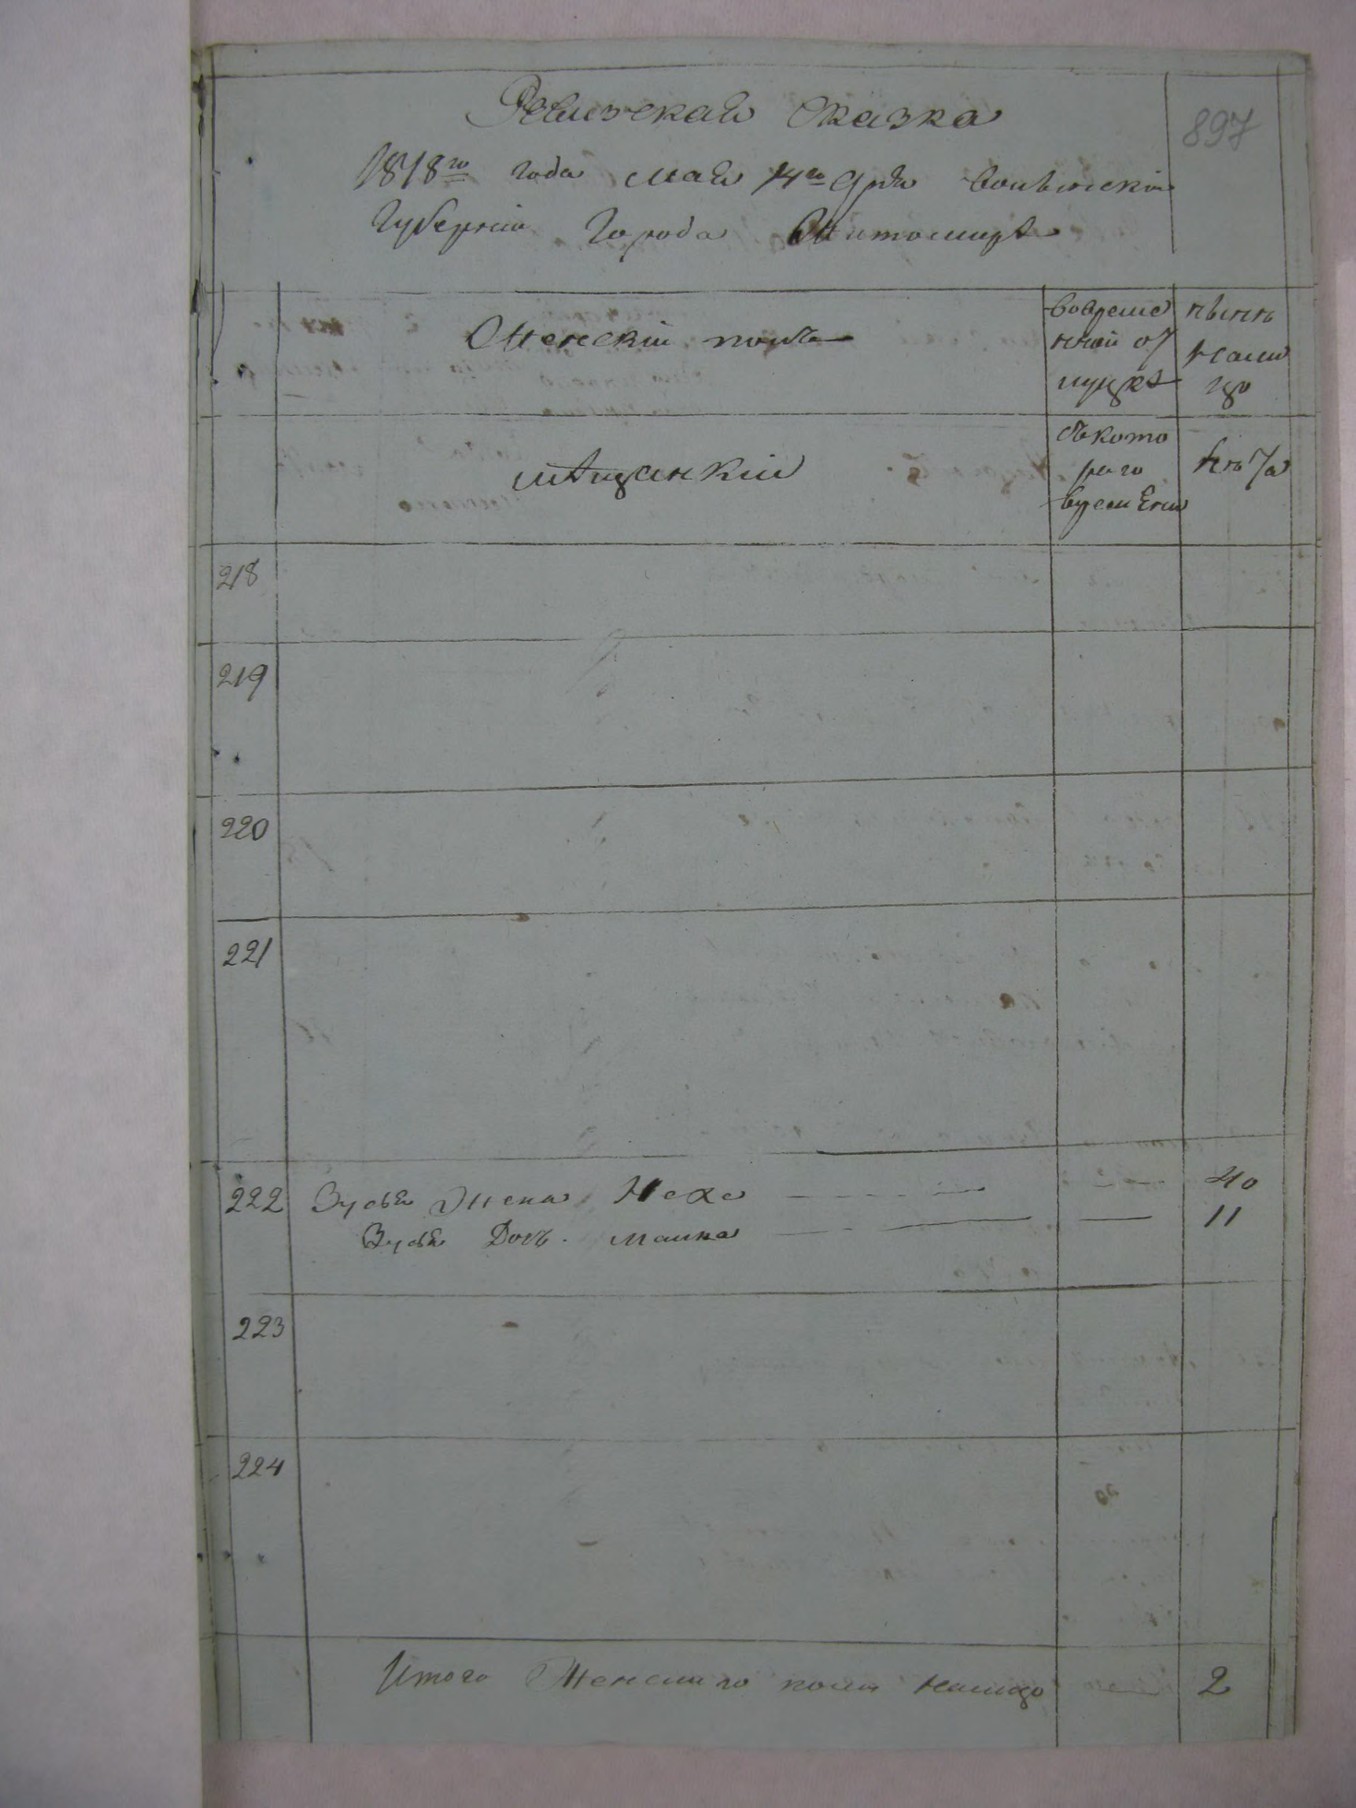 Ревизская Сказка
897
1818го года мая 14го дня Волынской
Губерніи Города Житомира
Женскій полъ
вовреме
нной от
лучкѣ
нынѣ
нали
цо
мѣщанкій
съкото
раго
времени
лѣта
218
219
220
221
222 Зуся жена Неха 40
Зуся Доч. Малка 11
223
224
Итого Женскаго пола налицо 2